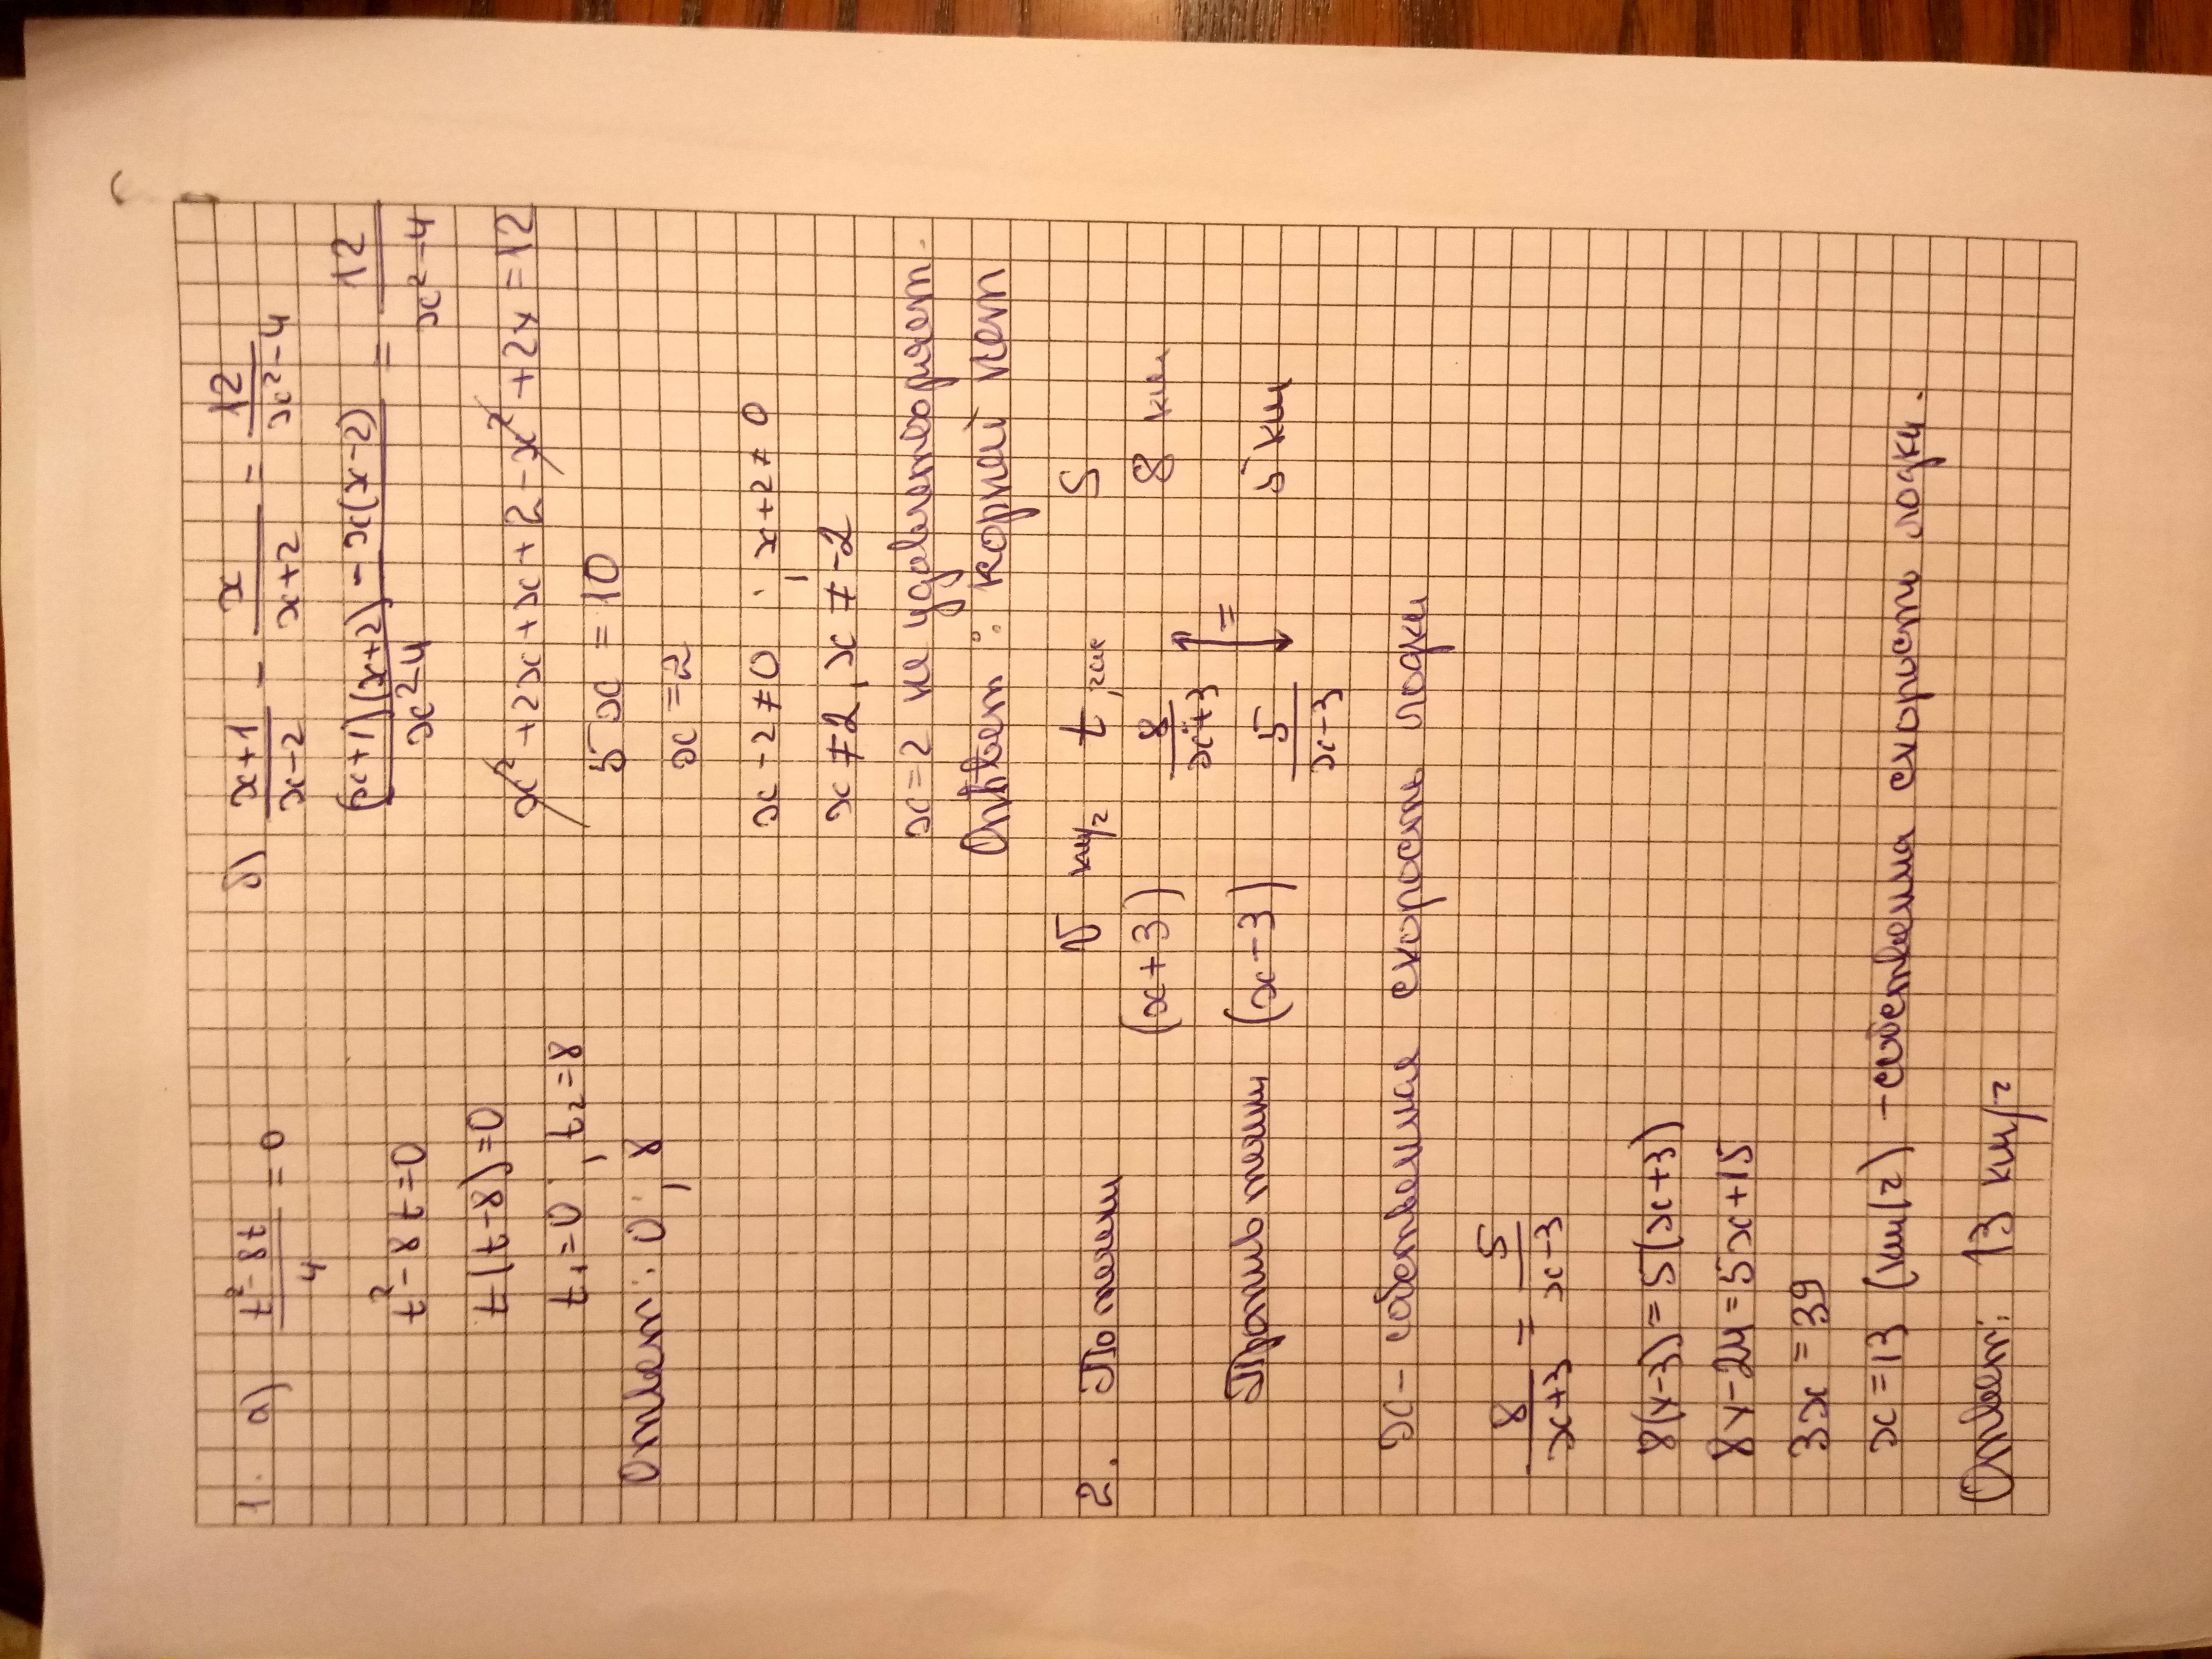 1. а) (t² - 8t)/4 = 0
t² - 8t = 0
t(t-8) = 0
t₁ = 0 ; t₂ = 8
Ответ: 0 ; 8
б) (x+1)/(x-2) - x/(x+2) = 12/(x²-4)
((x+1)(x+2) - x(x-2))/(x²-4) = 12/(x²-4)
x² + 2x + x + 2 - x² + 2x = 12
5x = 10
x = 2
x - 2 ≠ 0 ; x + 2 ≠ 0
x ≠ 2, x ≠ -2
x = 2 не удовлетворяет.
Ответ: корней нет
2. v км/г t, час S
По течен (x+3) 8/(x+3) 8 км
=
Против течен (x-3) 5/(x-3) 5 км
x - собственная скорость лодки
8/(x+3) = 5/(x-3)
8(x-3) = 5(x+3)
8x - 24 = 5x + 15
3x = 39
x = 13 (км/г) - собственна скорость лодки.
Ответ: 13 км/г